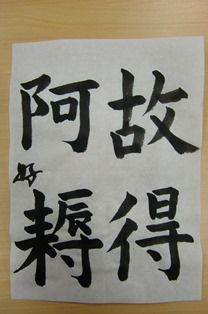 故得
阿耨
好